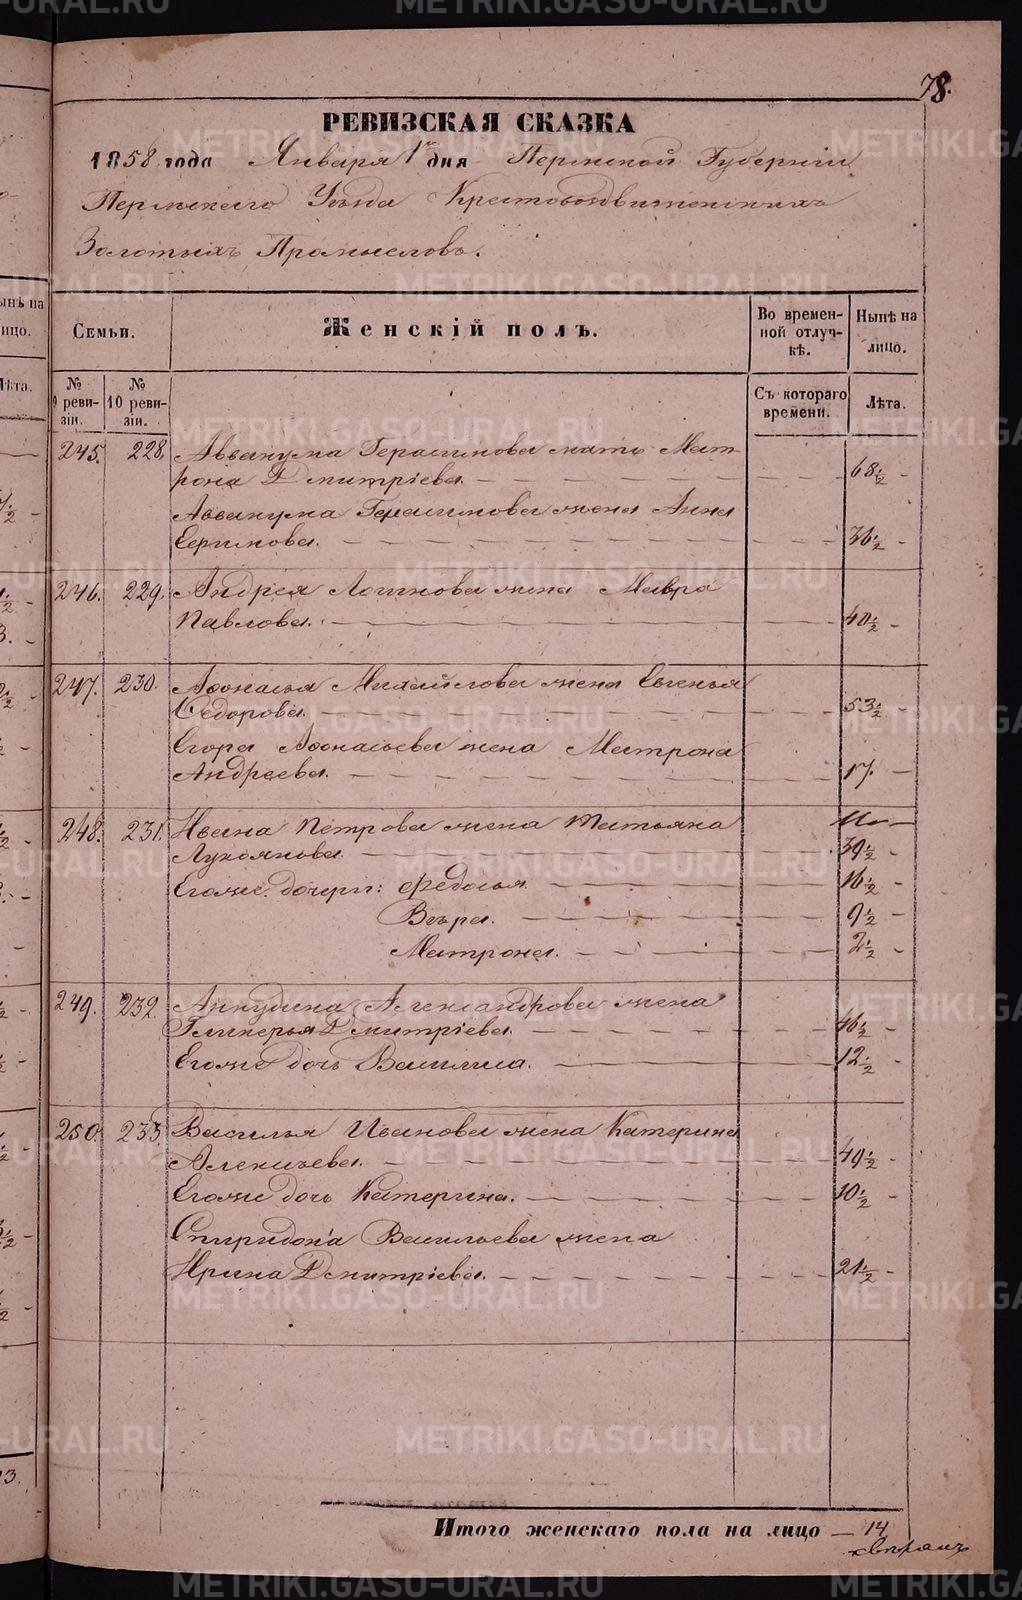 78.
РЕВИЗСКАЯ СКАЗКА
1858 года Января 1го дня Пермской Губерніи
Пермскаго Уѣзда Крестовоздвиженскихъ
Золотыхъ Промысловъ.
Семьи. Женскій полъ. Во времен-ной отлуч-кѣ. Нынѣ на лицо.
№ 9 реви-зіи. № 10 реви-зіи. Съ котораго времени. Лѣта.
245. 228. Аввакума Герасимова мать Мат-
рона Дмитріева. 68½
Аввакума Герасимова жена Анна
Ефимова. 36½
246. 229. Андрея Логинова жена Мавра
Павлова. 40½
247. 230. Афонасья Михайлова жена Евгенья
Федорова. 53½
Егора Афонасьева жена Матрона
Андреева. 17.
248. 231. Ивана Петрова жена Татьяна
Лукоянова. 39½
Егоже дочери: Федосья. 16½
Вѣра. 9½
Матрона. 2½
249. 232. Анкудина Александрова жена
Гликерья Дмитріева. 46½
Егоже дочь Василиса. 12½
250. 233 Василья Иванова жена Катерина
Алексѣева. 49½
Егоже дочь Катерина. 10½
Спиридона Васильева жена
Ирина Дмитріева. 21½
Итого женскаго пола на лицо — 14
METRIKI.GASO-URAL.RU